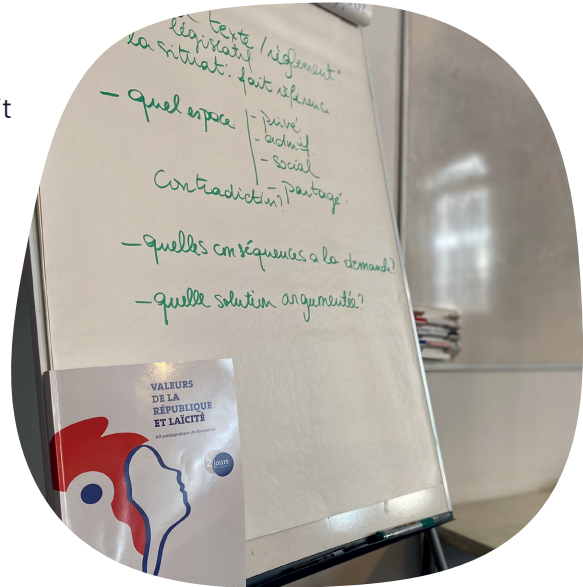 texte / règlement:
législatif
la situat°: fait référence.
- quel espace
- privé
- admif
- social
- Partagé.
Contradiction?
- quelles conséquences a la demande?
- quelle solution argumentée?
VALEURS
DE LA
RÉPUBLIQUE
ET LAÏCITÉ
Kit pédagogique de formation
2 jours